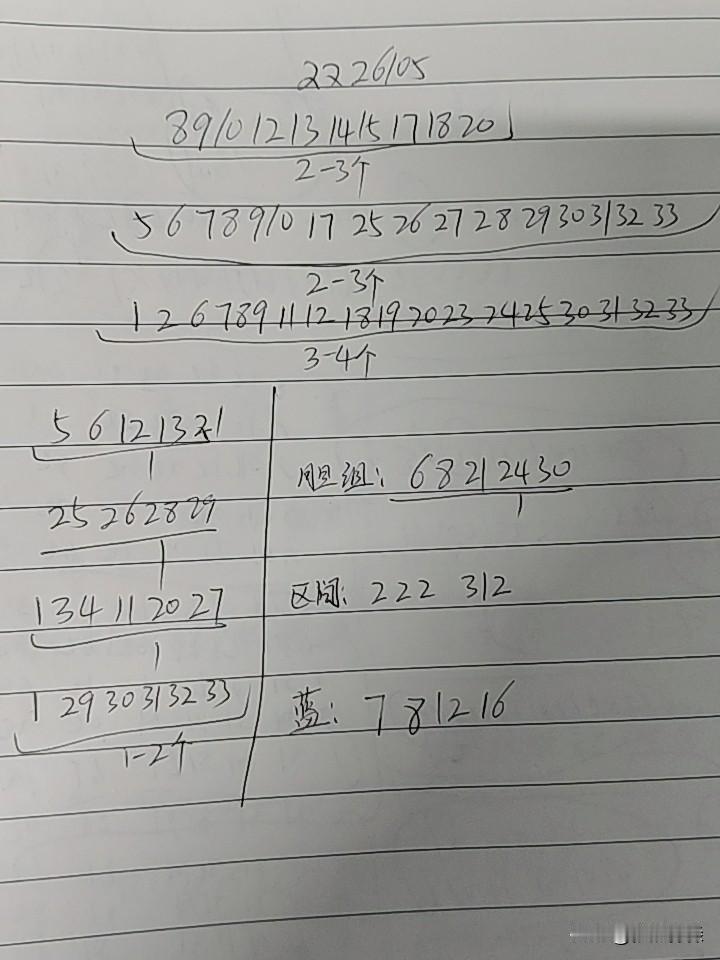 2226105
8 9 10 12 13 14 15 17 18 20
2-3个
5 6 7 8 9 10 17 25 26 27 28 29 30 31 32 33
2-3个
1 2 6 7 8 9 11 12 18 19 20 23 24 25 30 31 32 33
3-4个
5 6 12 13 21
1
25 26 28 29
1
1 3 4 11 20 27
1
1 29 30 31 32 33
1-2个
胆组: 6 8 21 24 30
1
区间: 222 312
蓝: 7 8 12 16